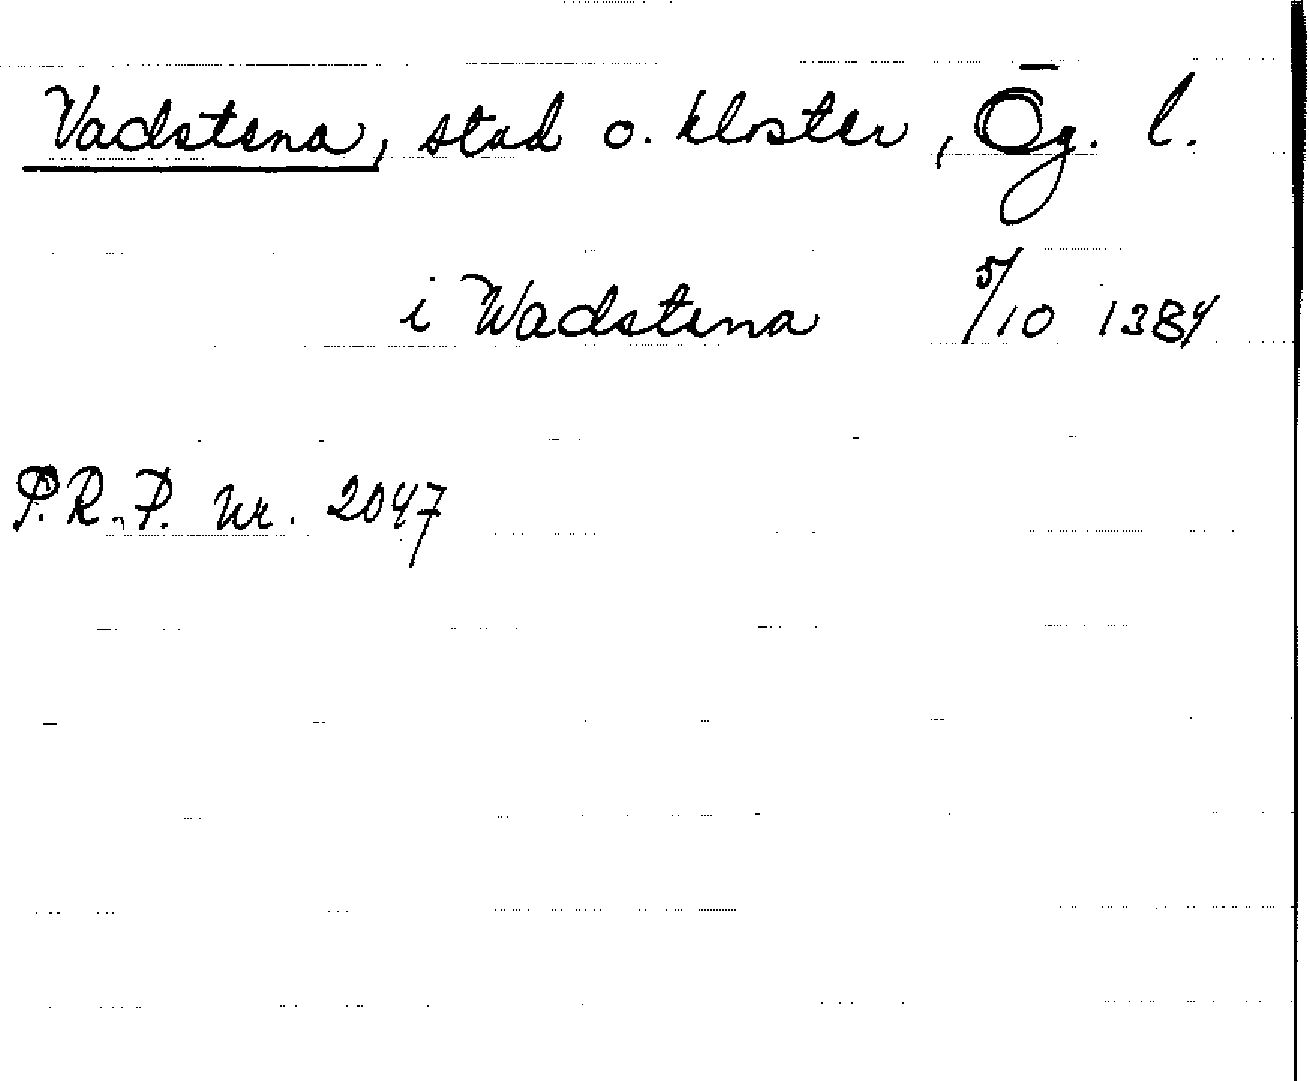 Vadstena, stad o. kloster, Ög. l.
i Wadstena 5/10 1384
P.R.P. nr. 2047